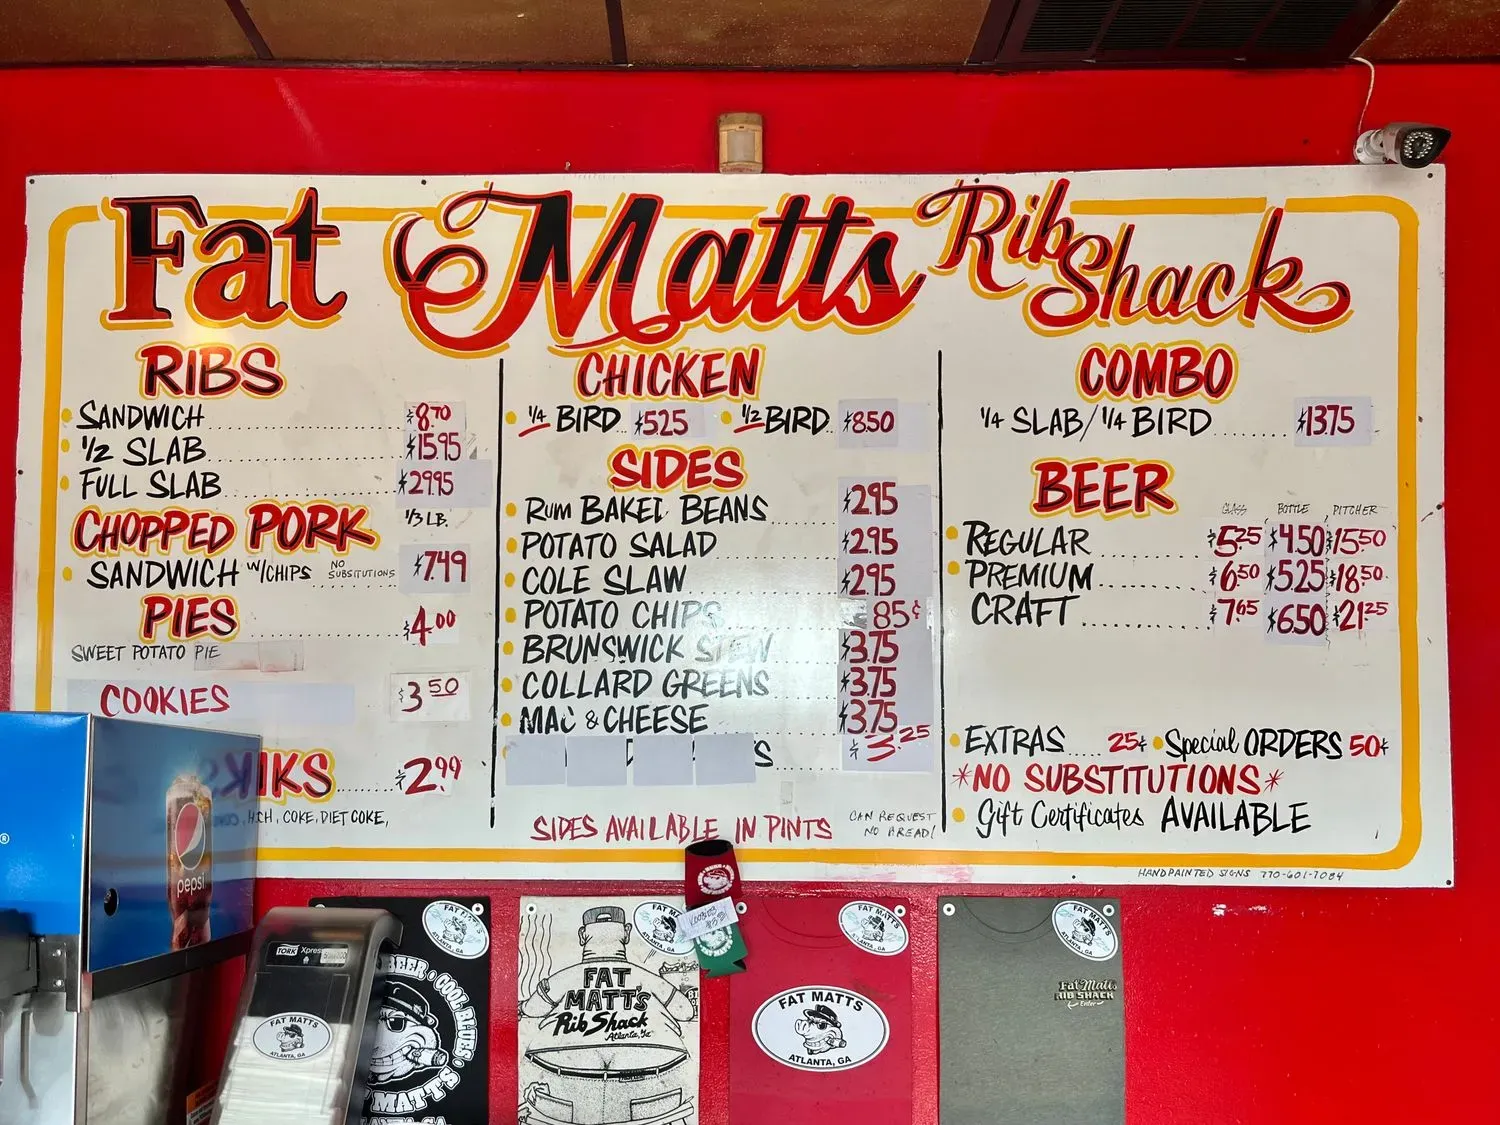 Fat Matts Rib Shack
RIBS
SANDWICH $8.70
1/2 SLAB $15.95
FULL SLAB $29.95
CHOPPED PORK 1/3 LB.
SANDWICH W/CHIPS NO SUBSITUTIONS $7.49
PIES $4.00
SWEET POTATO PIE
COOKIES $3.50
$2.99
COKE, DIET COKE,
CHICKEN
1/4 BIRD $5.25 1/2 BIRD $8.50
SIDES
RUM BAKED BEANS $2.95
POTATO SALAD $2.95
COLE SLAW $2.95
POTATO CHIPS 85¢
BRUNSWICK STEW $3.75
COLLARD GREENS $3.75
MAC & CHEESE $3.75
$3.25
SIDES AVAILABLE IN PINTS
CAN REQUEST
NO BREAD!
COMBO
1/4 SLAB/1/4 BIRD $13.75
BEER
GLASS BOTTLE PITCHER
REGULAR $5.25 $4.50 $15.50
PREMIUM $6.50 $5.25 $18.50
CRAFT $7.65 $6.50 $21.25
EXTRAS 25¢ Special ORDERS 50¢
*NO SUBSTITUTIONS*
Gift Certificates AVAILABLE
HANDPAINTED SIGNS 770-601-7084
pepsi
TORK Xpress
FAT MATTS
ATLANTA, GA
FAT MATTS
ATLANTA, GA
BEER • COOL BLUES •
FAT MATT'S
FAT MATT'S
Rib Shack
Atlanta, Ga
KOOZIES
FAT MATTS
ATLANTA, GA
FAT MATTS
ATLANTA, GA
FAT MATTS
ATLANTA, GA
Fat Matts
RIB SHACK